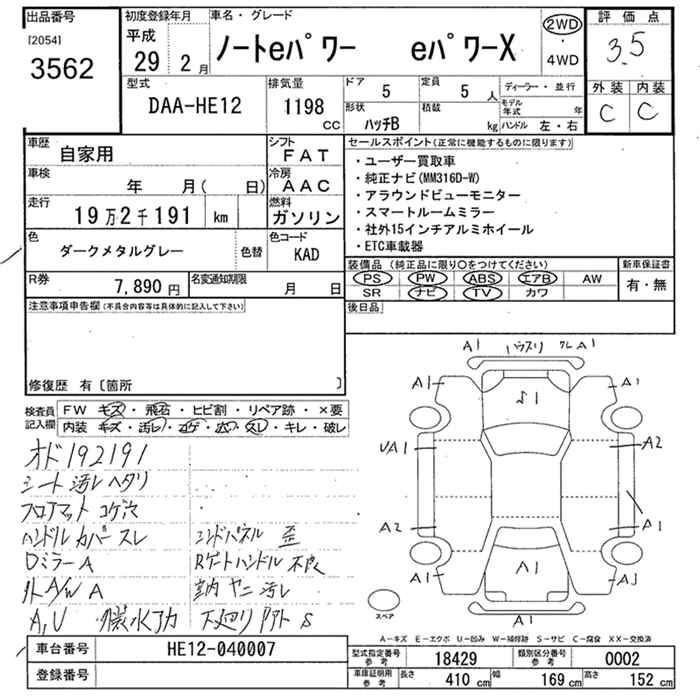 出品番号
[2054]
3562
初度登録年月
平成
29 2 月
車名・グレード
ノートeパワー eパワーX
2WD
・
4WD
評価点
3.5
外装 内装
C C
型式
DAA-HE12
排気量
1198
CC
ドア
5
定員
5 人
形状
ハッチB
積載
kg
ディーラー・並行
モデル年式 年
ハンドル 左・右
車歴
自家用
シフト
FAT
車検
年 月( 日)
冷房
AAC
走行
19万2千191 km
燃料
ガソリン
色
ダークメタルグレー
色替
色コード
KAD
R券
7,890円
名変通知期限
月 日
セールスポイント(正常に機能するものに限ります)
・ユーザー買取車
・純正ナビ(MM316D-W)
・アラウンドビューモニター
・スマートルームミラー
・社外15インチアルミホイール
・ETC車載器
装備品 (純正品に限り○をつけてください)
新車保証書
PS PW ABS エアB AW
SR ナビ TV カワ
有・無
後日品
注意事項申告欄(不具合内容等は具体的に記入して下さい)
修復歴 有〔箇所 〕
検査員
記入欄
FW キズ・飛石・ヒビ割・リペア跡・×要
内装 キズ・汚レ・コゲ・穴・スレ・キレ・破レ
オド192191
シート汚レヘタリ
フロアマットコゲ穴
ハンドルカバースレ
コンドパネル歪
DミラーA
Rゲートハンドル不良
外A/W A
室内ヤニ汚レ
A,U
下廻り
S
A1 ハウスリ クレA1
A1 A1
S1
UA1 A2
A2 A1
A1
A1
A1
スペア
A1
A－キズ E－エクボ U－凹み W－補修跡 S－サビ C－腐食 XX－交換済
車台番号
HE12-040007
登録番号
型式指定番号
参考
18429
類別区分番号
参考
0002
車庫証明用
参考
長さ 410 cm 幅 169 cm 高さ 152 cm